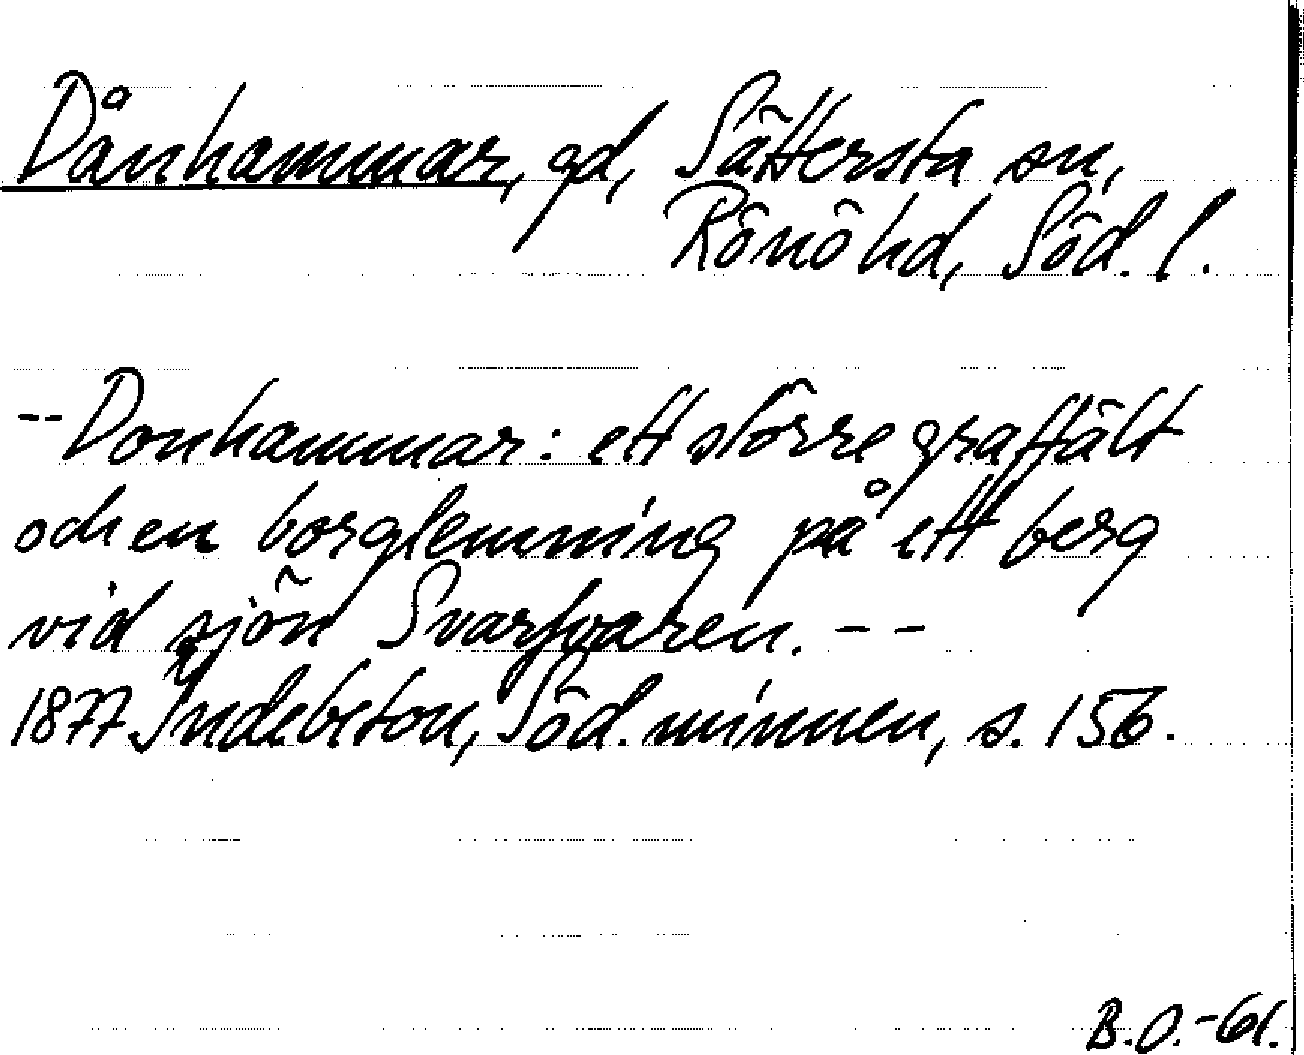 Dånhammar, gd, Sättersta sn,
Rönö hd, Söd. l.
-- Donhammar: ett större graffält
och en borglemning på ett berg
vid sjön Svarfvaren. --
1877 Indebetou, Söd. minnen, s. 156.
B.O.-61.